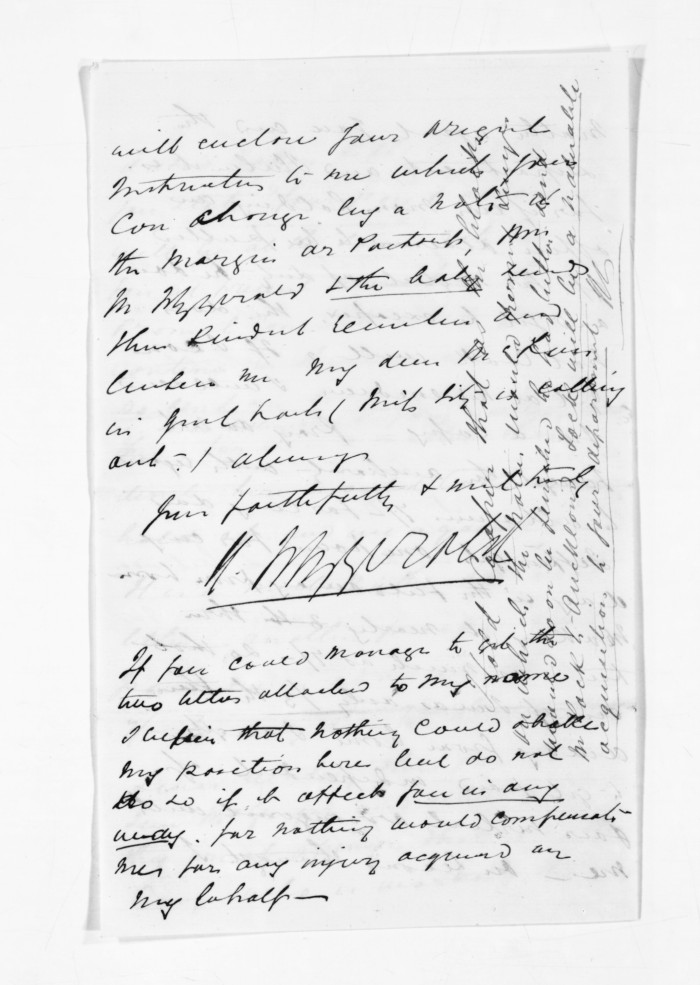 will enclose your original
Instructions to me which you
Can change by a note to
the margin or Postcript, Mrs
M Fitzgerald & the baby sends
their kindest remembs and
believe me My dear McLean
in great haste (Miss Fitz is calling
out-!) always
Your faithfully & most truly
N. Fitzgerald
If you could manage to get the
two letters attached to my name
I believe that nothing could shake
my position here but do not
do so if it affects you in any
way. for nothing would compensate
me for any injury acquired on
my behalf—
that the
on which the would
soon be furnished
Mr Lock & Auckland Lock will be a valuable
acquisition to your department